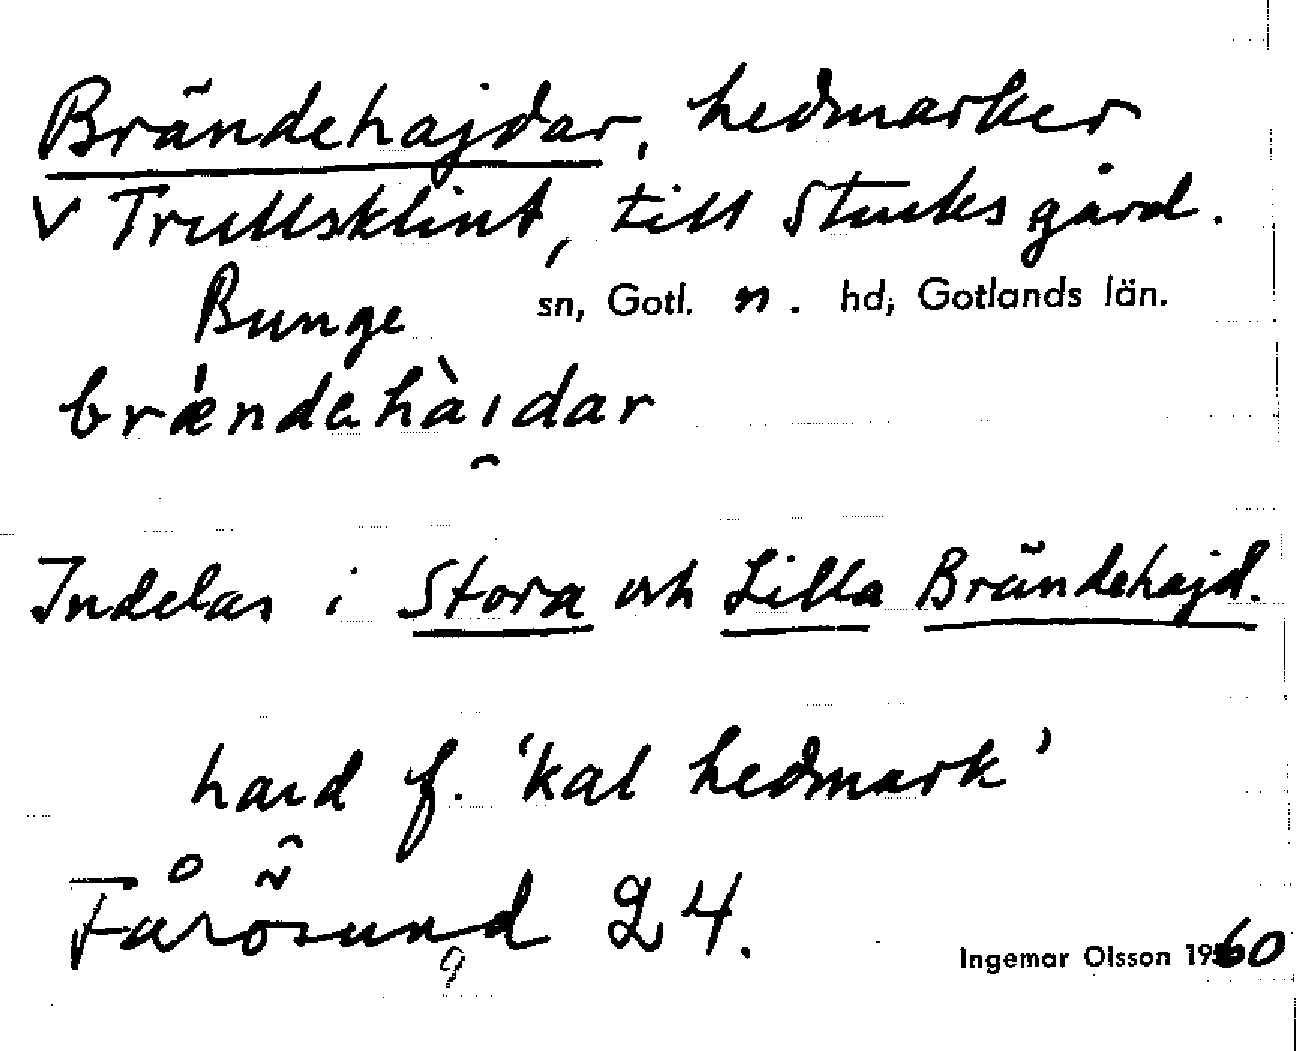 Brändehajdar, hedmarker
V Trullsklint, till Stucks gård.
Bunge sn, Gotl. n. hd, Gotlands län.
brændehàı̯dar
Indelas i Stora och Lilla Brändehajd.
haı̯d f. 'kal hedmark'
Fårösund 24.
9
Ingemar Olsson 1960